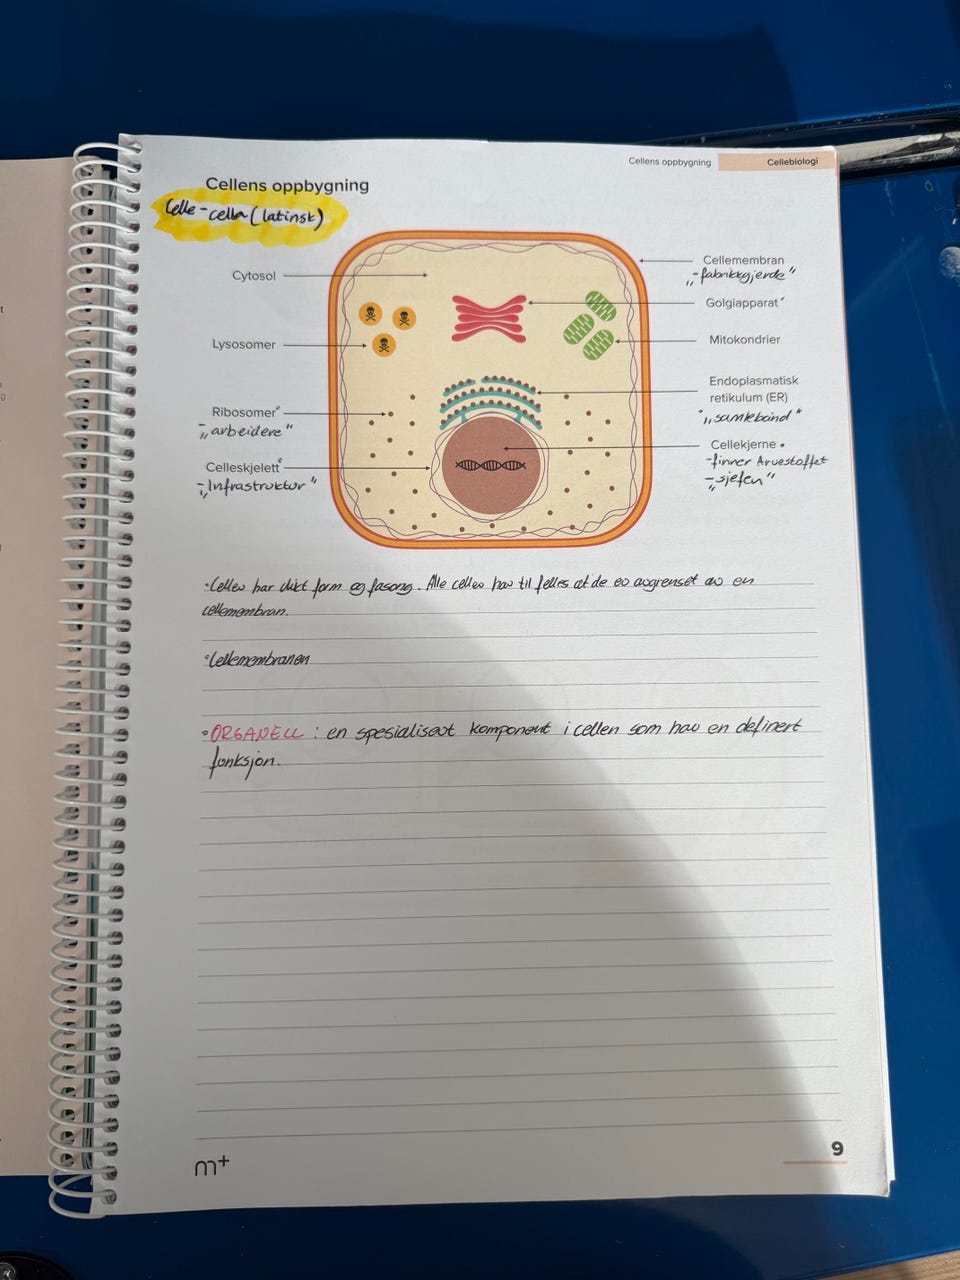 Cellens oppbygning
Cellebiologi
Cellens oppbygning
Celle - cella (latinsk)
Cytosol
Cellemembran
-"fabrikkgjerde"
Golgiapparat
Lysosomer
Mitokondrier
Endoplasmatisk
retikulum (ER)
"samlebånd"
Ribosomer
-"arbeidere"
Cellekjerne
-finner Arvestoffet
-"sjefen"
Celleskjelett
-"Infrastruktur"
•Celler har ulikt form og fasong. Alle celler har til felles at de er avgrenset av en
cellemembran.
•Cellemembranen
•ORGANELL : en spesialisert komponent i cellen som har en definert
funksjon.
m+
9